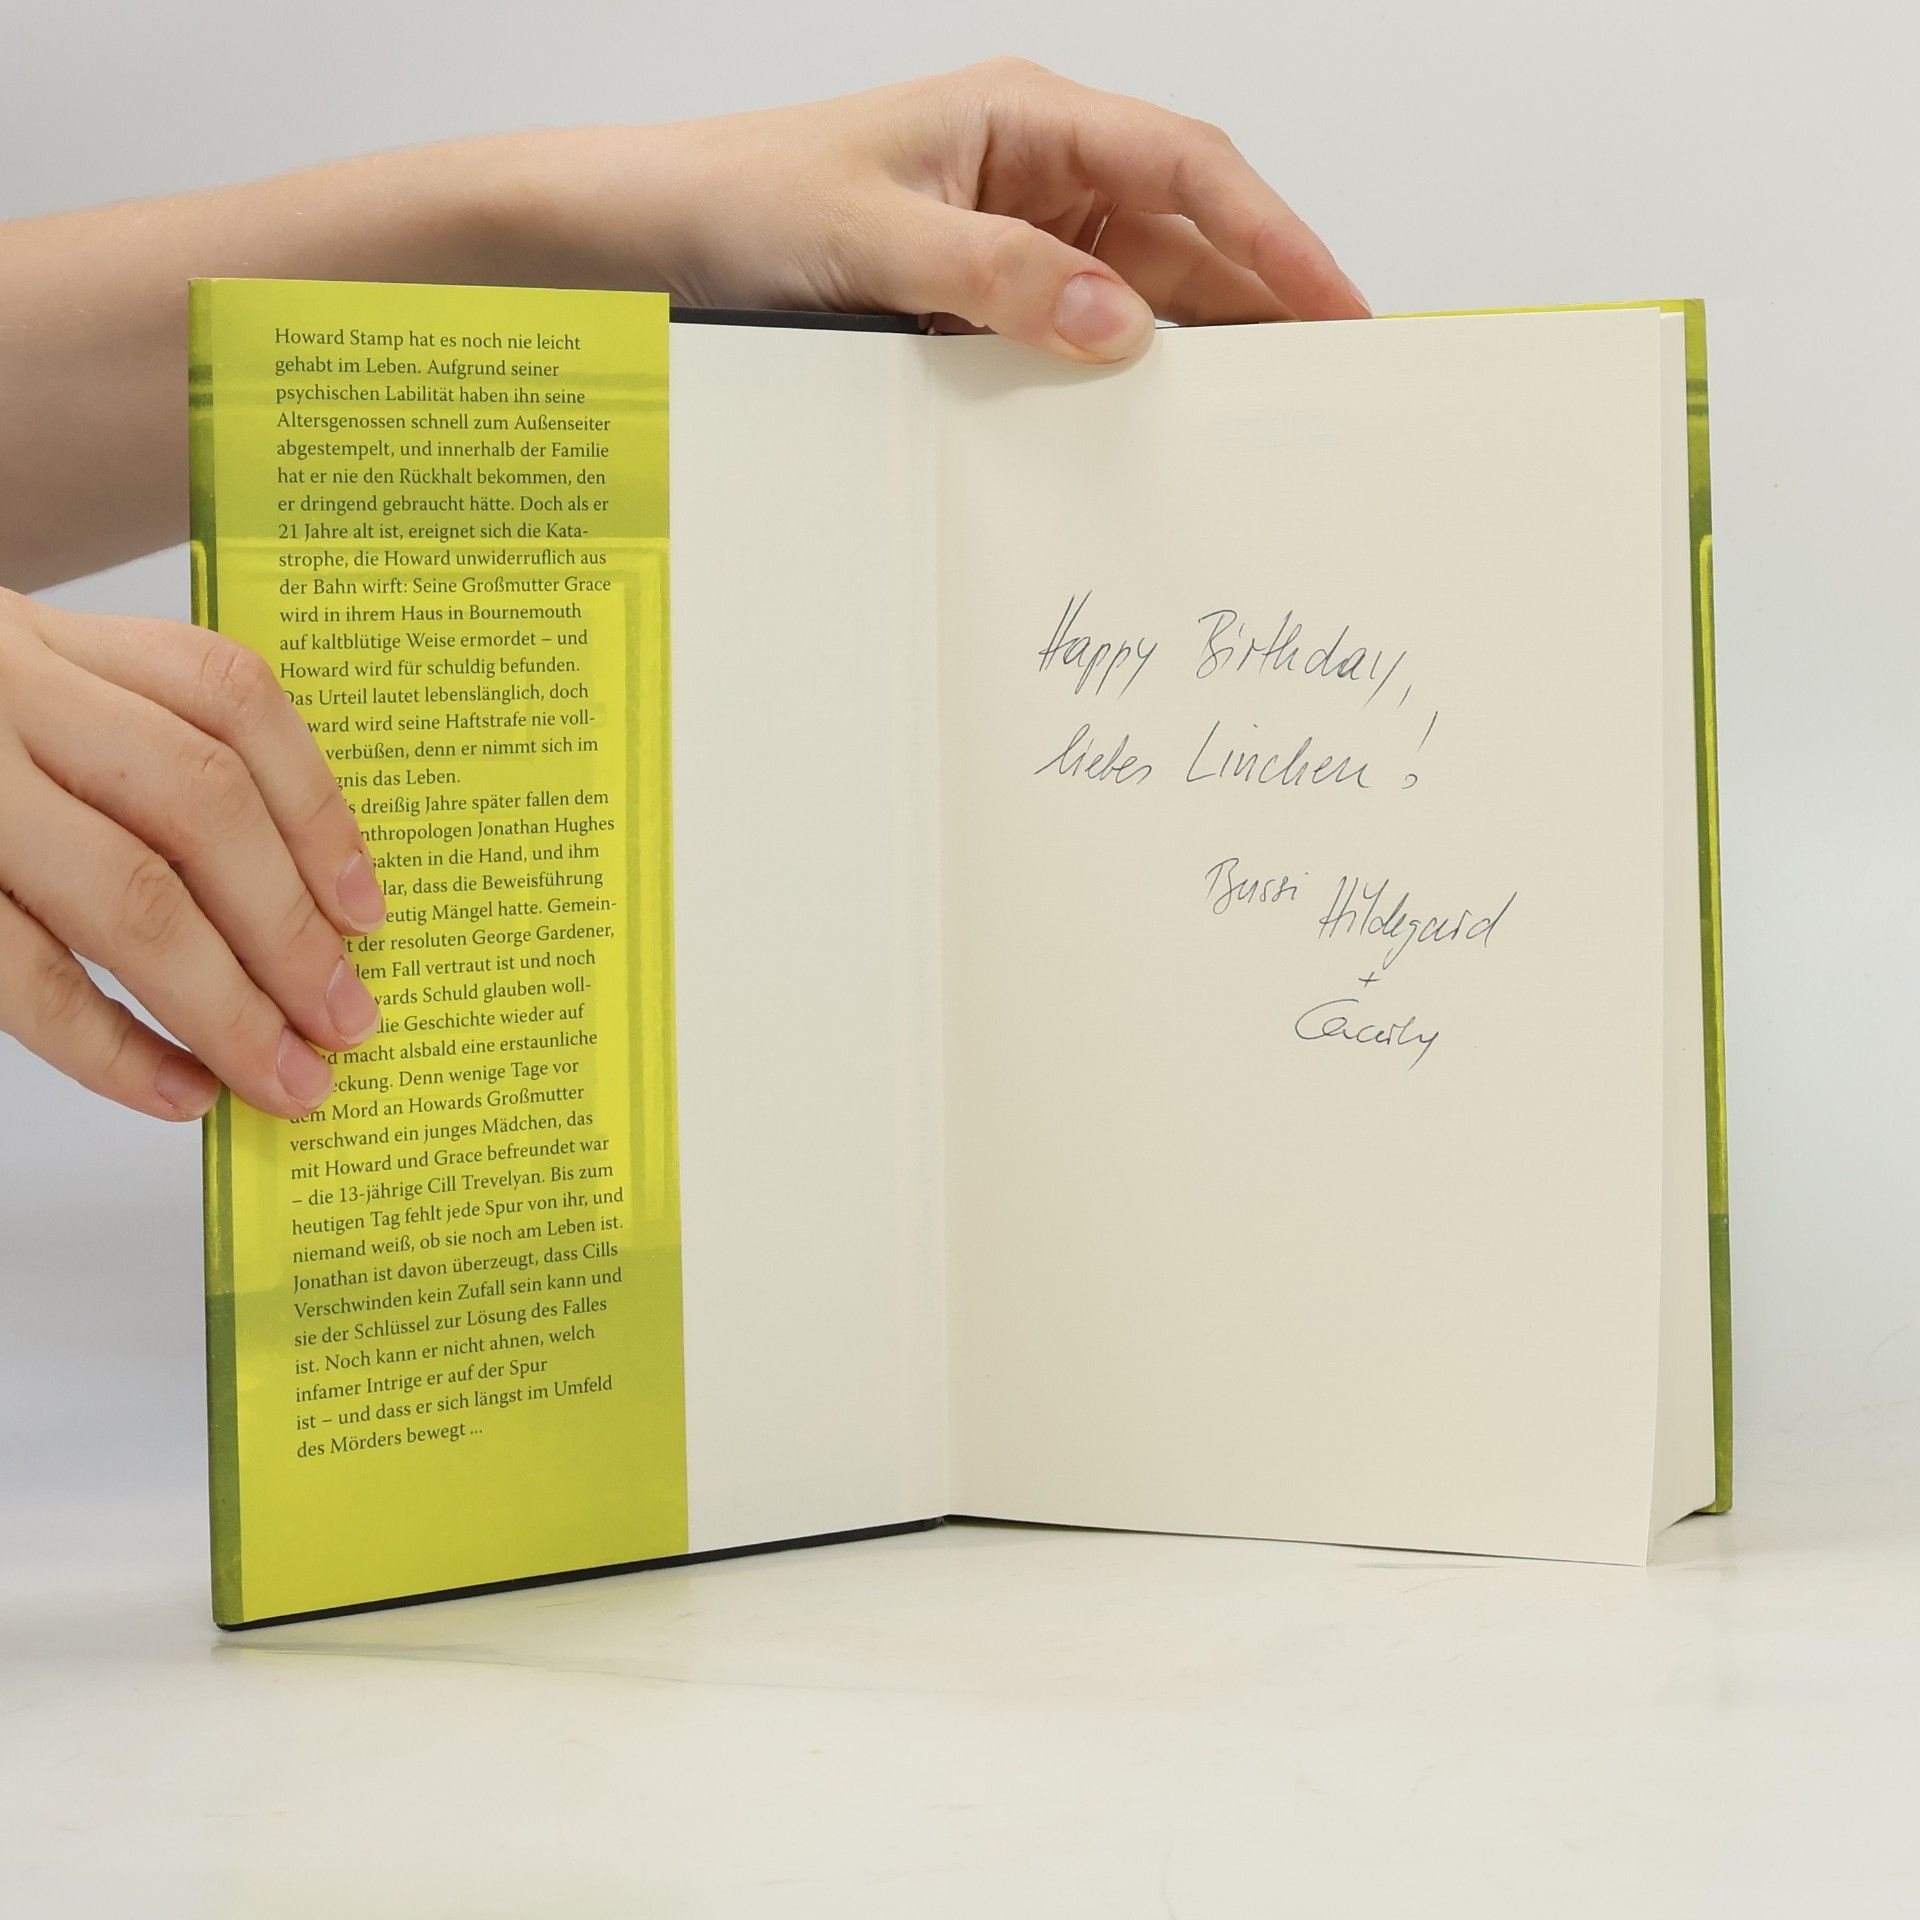 Howard Stamp hat es noch nie leicht
gehabt im Leben. Aufgrund seiner
psychischen Labilität haben ihn seine
Altersgenossen schnell zum Außenseiter
abgestempelt, und innerhalb der Familie
hat er nie den Rückhalt bekommen, den
er dringend gebraucht hätte. Doch als er
21 Jahre alt ist, ereignet sich die Kata-
strophe, die Howard unwiderruflich aus
der Bahn wirft: Seine Großmutter Grace
wird in ihrem Haus in Bournemouth
auf kaltblütige Weise ermordet – und
Howard wird für schuldig befunden.
Das Urteil lautet lebenslänglich, doch
ward wird seine Haftstrafe nie voll-
verbüßen, denn er nimmt sich im
gnis das Leben.
s dreißig Jahre später fallen dem
nthropologen Jonathan Hughes
sakten in die Hand, und ihm
lar, dass die Beweisführung
eutig Mängel hatte. Gemein-
t der resoluten George Gardener,
dem Fall vertraut ist und noch
wards Schuld glauben woll-
die Geschichte wieder auf
d macht alsbald eine erstaunliche
eckung. Denn wenige Tage vor
dem Mord an Howards Großmutter
verschwand ein junges Mädchen, das
mit Howard und Grace befreundet war
– die 13-jährige Cill Trevelyan. Bis zum
heutigen Tag fehlt jede Spur von ihr, und
niemand weiß, ob sie noch am Leben ist.
Jonathan ist davon überzeugt, dass Cills
Verschwinden kein Zufall sein kann und
sie der Schlüssel zur Lösung des Falles
ist. Noch kann er nicht ahnen, welch
infamer Intrige er auf der Spur
ist – und dass er sich längst im Umfeld
des Mörders bewegt ...
Happy Birthday,
liebes Linchen!
Bussi Hildegard
+